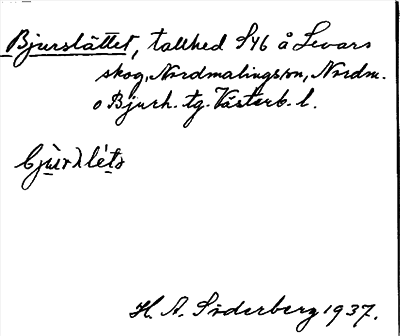 Bjurslättet, tallhed S46 å Levars
skog, Nordmalings sn, Nordm.
o Bjurh. tg. Västerb. l.
H. A. Söderberg 1937.